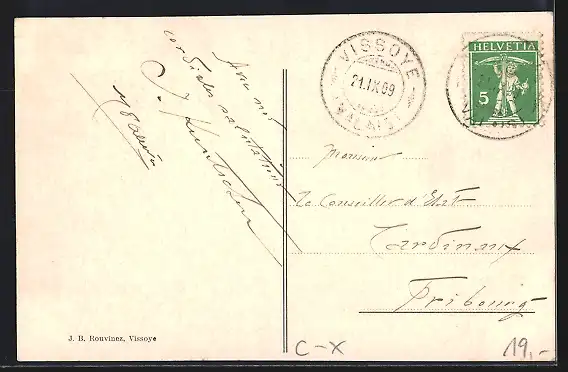 HELVETIA
5
VISSOYE
21.IX.09
(VALAIS)
cordiales salutations
Monsieur
Le Conseiller d'Etat
Cardinaux
Fribourg
J. B. Rouvinez, Vissoye
C-X
19,-